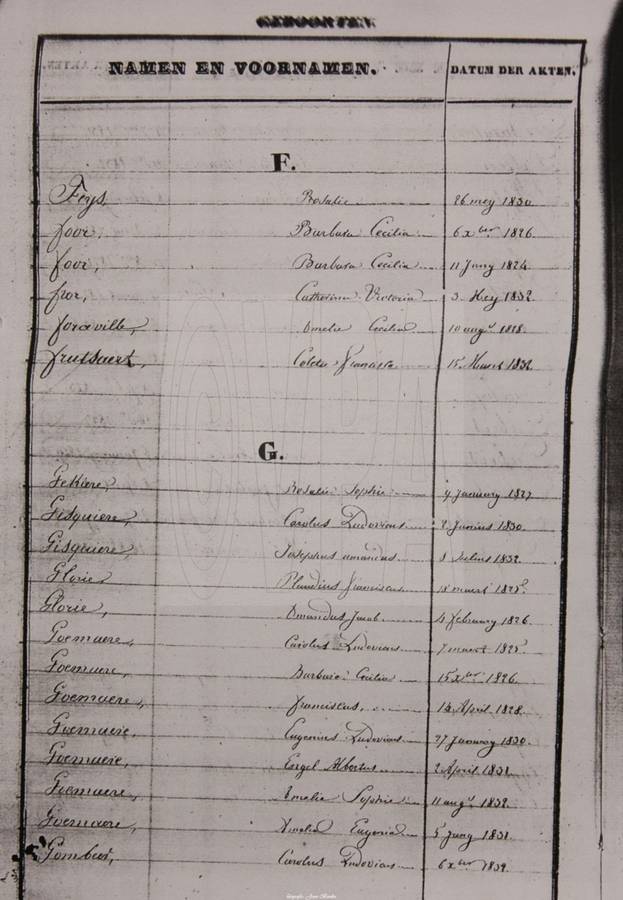 GEBOORTEN
NAMEN EN VOORNAMEN. DATUM DER AKTEN.
F.
Feys, Rosalie 26 mey 1830
foor, Barbara Cecilia 6 xber 1826.
foor, Barbara Cecilia 11 Juny 1824
Catherina Victoria 3 Mey 1832.
foraville, Amelie Cecilia 10 augt 1828.
frutsaert, Colette francisca 15 Maert 1832
G.
Gekiere, Rosalie Sophie 9 January 1827
Gisquiere, Carolus Ludovicus 2 Junius 1830.
Gisquiere, Josephus amandus 8 Julius 1832.
Glorie franciscus 18 maert
Glorie, Amandus Jacob 4 february 1826.
Goemaere, Carolus Ludovicus 7 maert
Goemaere, Barbara Cecilia 15 xber 1826.
Goemaere, franciscus, 14 April 1828.
Goemaere, Eugenius Ludovicus 27 January 1830.
Goemaere, Engel Albertus 2 April 1831.
Goemaere, Amelie Sophie 11 augt 1832.
Goemaere, Amelia Eugenia 5 Juny 1831.
Carolus Ludovicus 6 xber